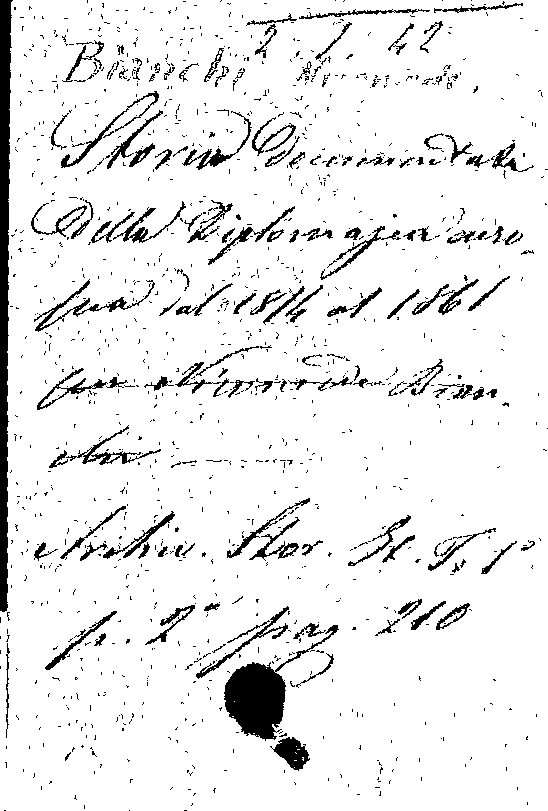 2. 1. 42
Bianchi Nicomede.
Storia Documentata
Della Diplomazia euro-
pea dal 1814 al 1861
per Nicomede Bian-
chi
Archiv. Stor. It. T. 1º
p. 2ª pag. 210